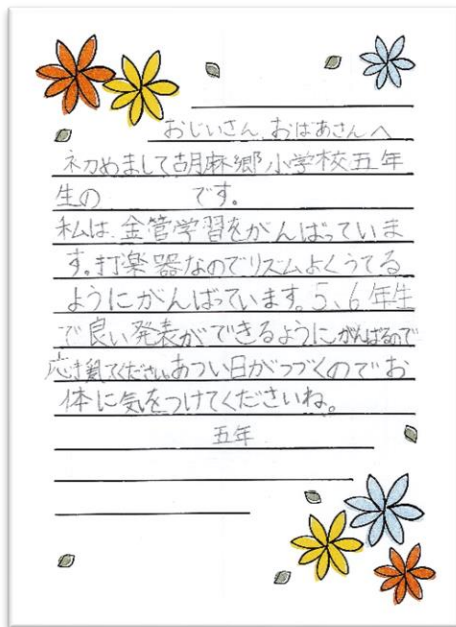 おじいさん、おばあさんへ
初めまして胡麻郷小学校五年
生の　　　です。
私は、金管学習をがんばっていま
す。打楽器なのでリズムよくうてる
ようにがんばっています。5、6年生
で良い発表ができるようにがんばるので
応援してください。あつい日がつづくのでお
体に気をつけてくださいね。
五年